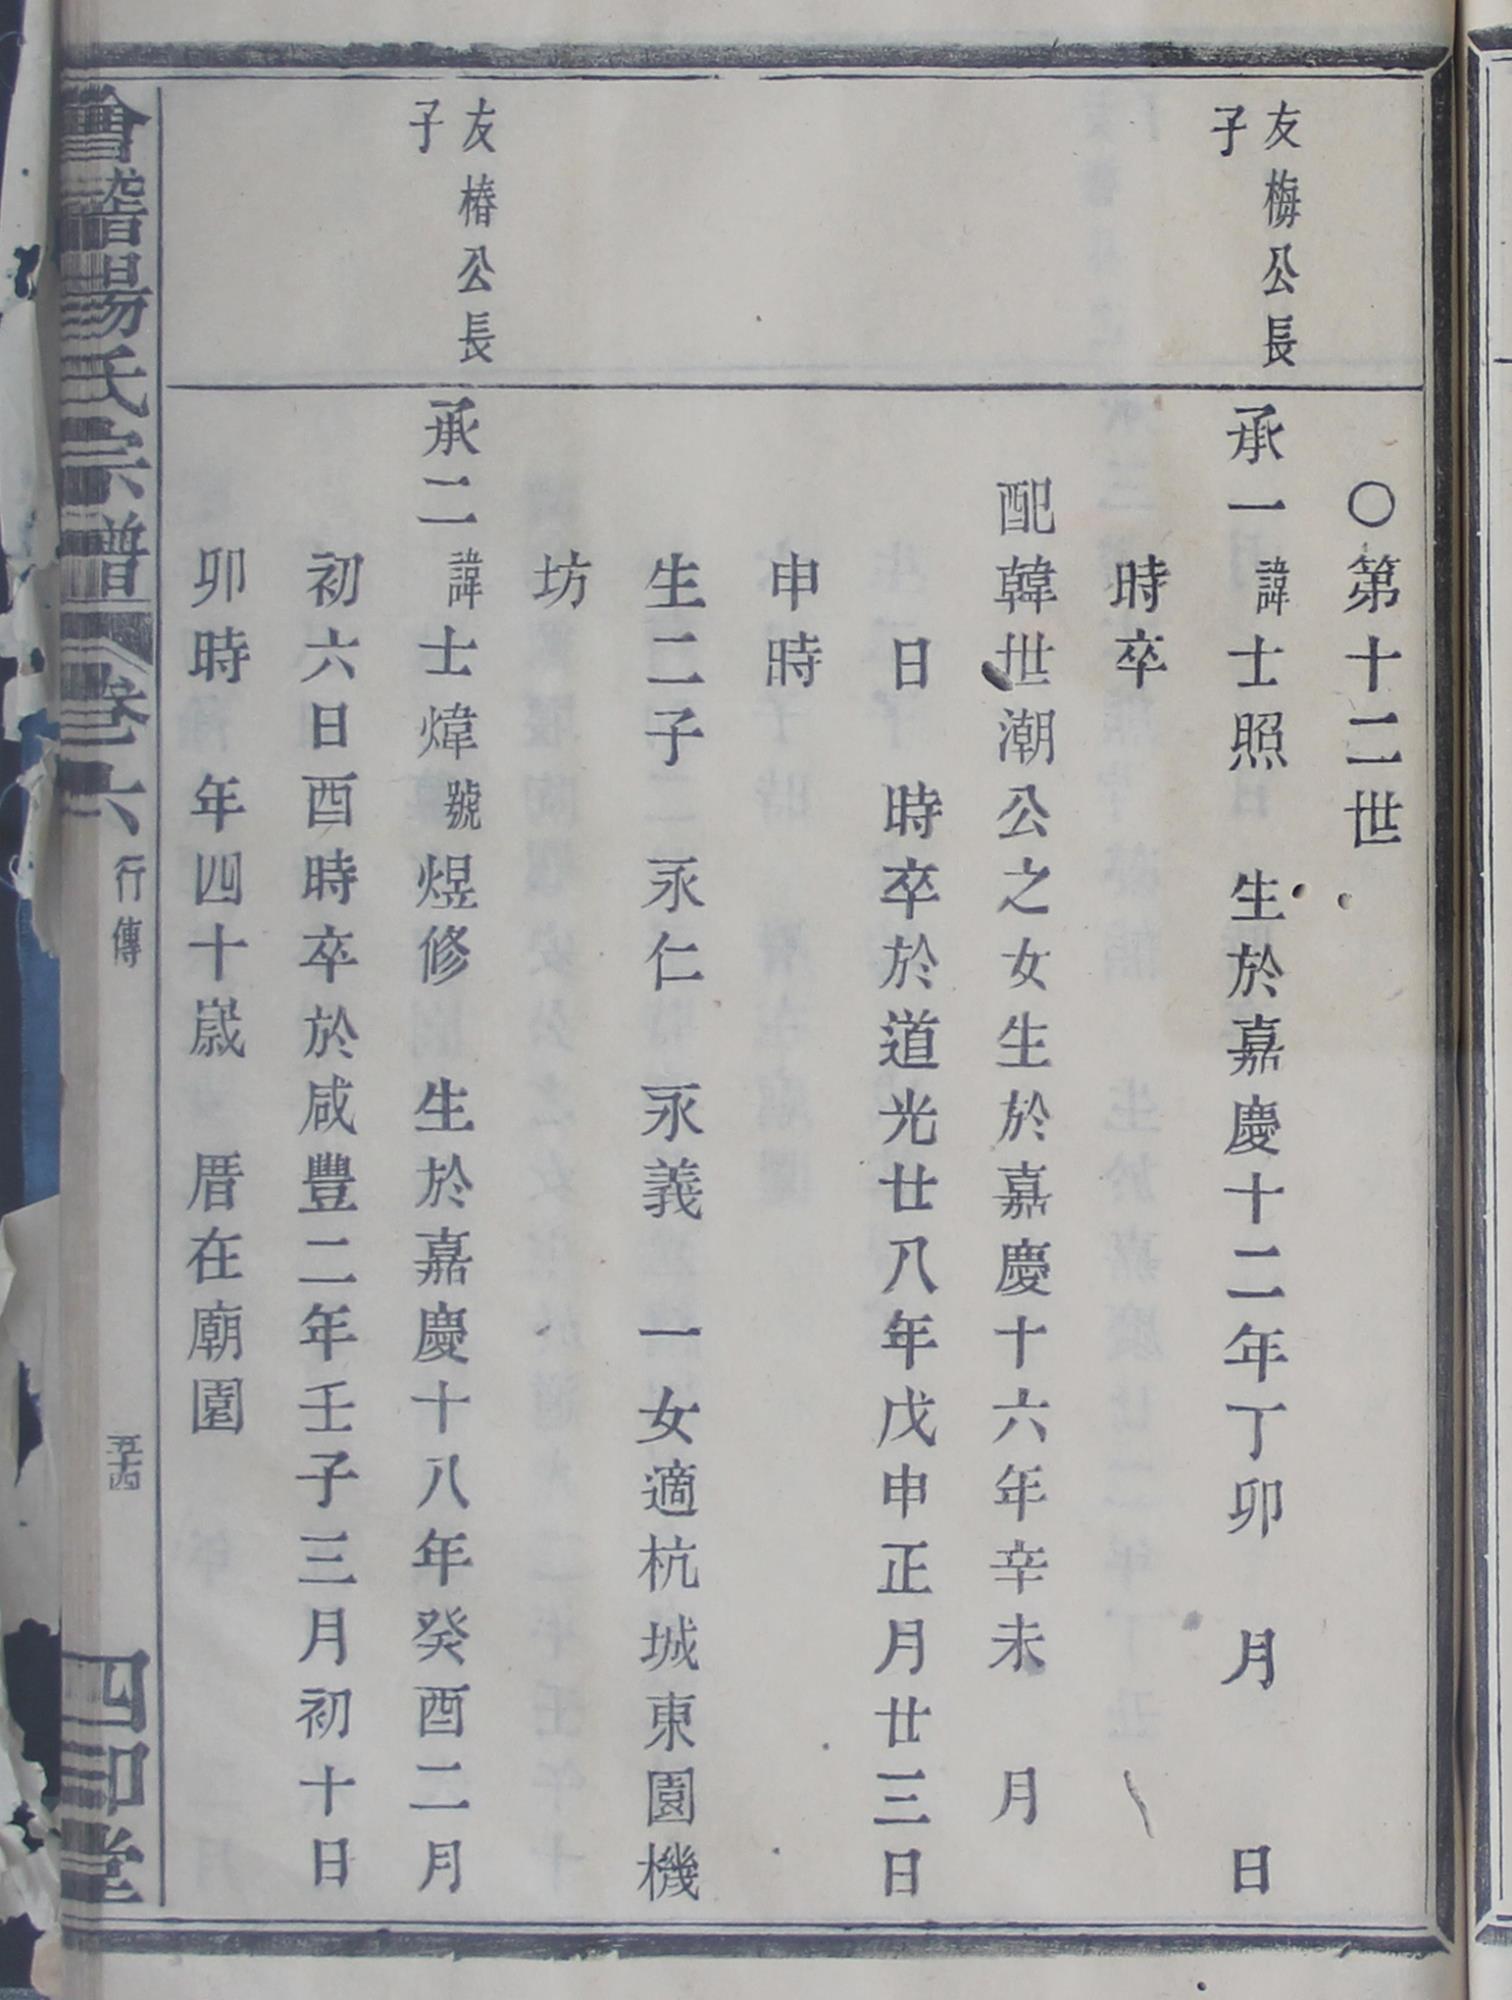 ○第十二世
友梅公長
子
承一諱士照 生於嘉慶十二年丁卯 月 日
時卒
配韓世潮公之女生於嘉慶十六年辛未 月
日 時卒於道光廿八年戊申正月廿三日
申時
生二子 永仁 永義 一女適杭城東園機
坊
友椿公長
子
承二諱士煒號煜修 生於嘉慶十八年癸酉二月
初六日酉時卒於咸豐二年壬子三月初十日
卯時 年四十嵗 厝在廟園
會稽楊氏宗譜 卷六 行傳 五十四 四知堂